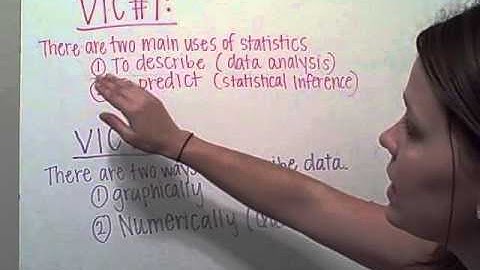 VIC #1:
There are two main uses of statistics
① To describe (data analysis)
predict (statistical Inference)
VIC
There are two ways describe data
① graphically
② Numerically